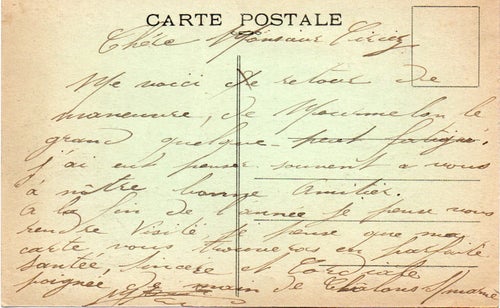 CARTE POSTALE
Chère Monsieur
Me voici de retour de
maneuvre, de Mourmelon le
grand quelque peut fatigué.
j'ai eut penser souvent a vous
à nôtre bonne amitier.
a la fin de l'année je peux vous
rendre visité je pense que ma
carte vous trouveras en parfaite
santée, sincere et Cordiale
poignée de main de Chalons s/marne